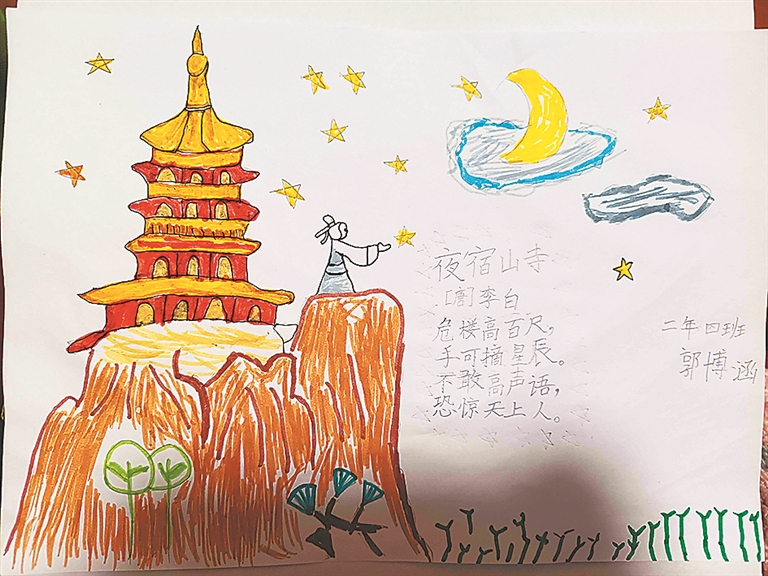 夜宿山寺
[唐]李白
危楼高百尺，
手可摘星辰。
不敢高声语，
恐惊天上人。
二年四班
郭博涵